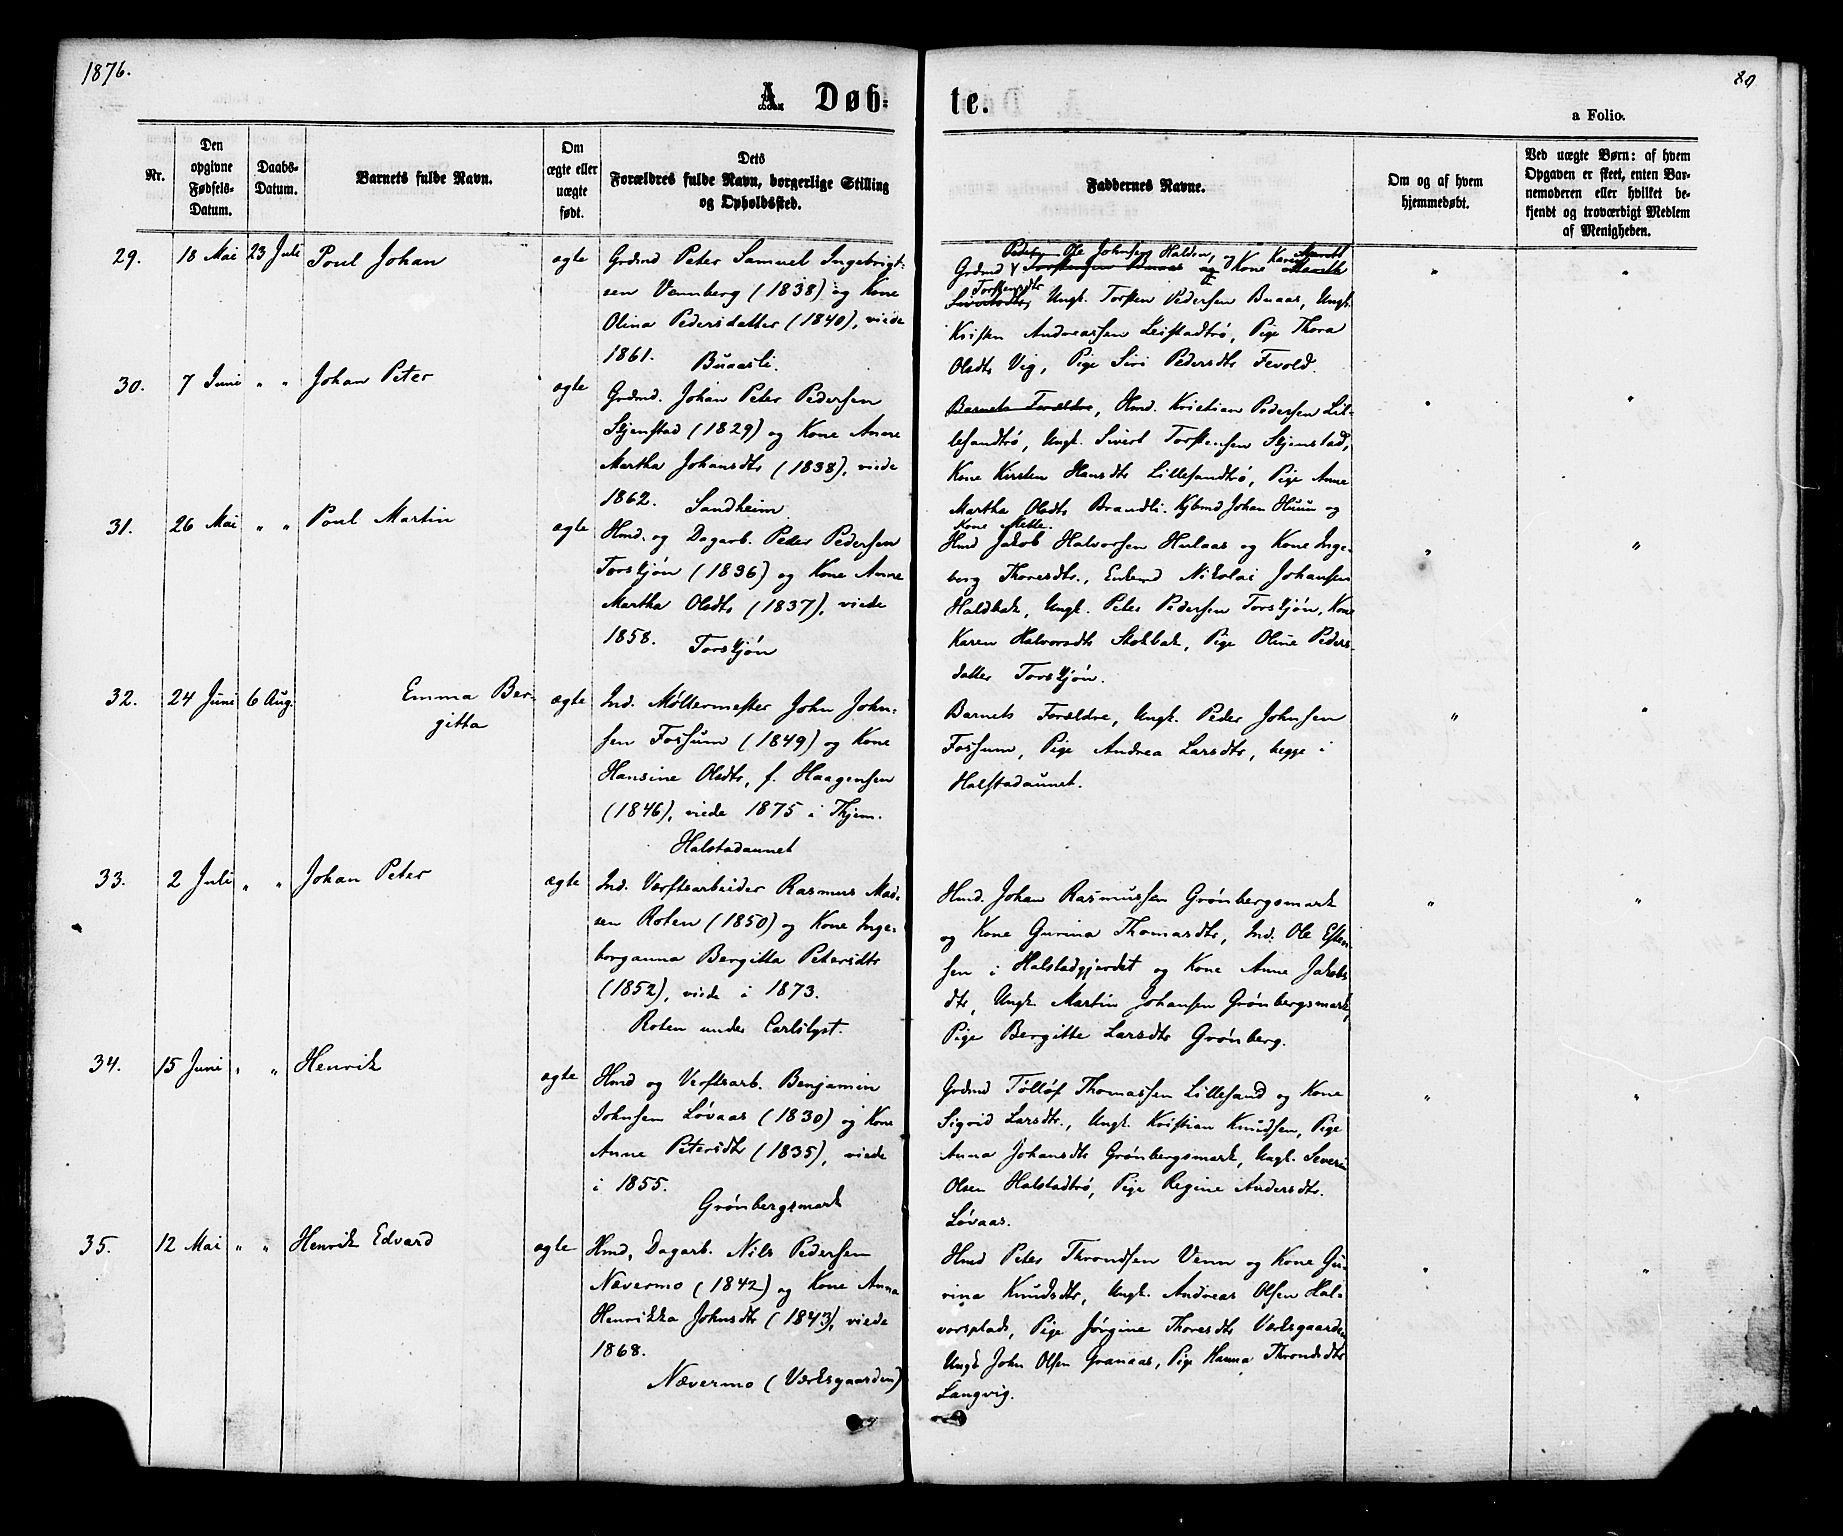 1876.
80
A. Døb-
te.
a Folio.
Nr.
Den opgivne Fødsels-Datum.
Daabs-Datum.
Barnets fulde Navn.
Om ægte eller uægte født.
Dets Forældres fulde Navn, borgerlige Stilling og Opholdssted.
Faddernes Navne.
Om og af hvem hjemmedøbt.
Ved uægte Børn: af hvem Opgaven er skeet, enten Barnemoderen eller hvilket bekjendt og troværdigt Medlem af Menigheden.
29. 18 Mai 23 Juli Poul Johan ægte
Grdmd Peter Samuel Ingebrigt-
sen Vennberg (1838) og Kone
Olina Pedersdatter (1840), viede
1861. Buaasli.
Ole Johnsen Halden, og Karen Marith
Grdmd Torstensen Buaas og Kone Marith
Torstensdtr
Sivertsdtr, Ungk. Torsten Pedersen Buaas, Ungk.
Kristen Andreassen Leistadtrø, Pige Thora
Olsdtr Vig, Pige Siri Pedersdtr Fevold.
30. 7 Juni " " Johan Peter ægte
Grdmd. Johan Peter Pedersen
Skjenstad (1829) og Kone Anne
Martha Johansdtr (1838), viede
1862. Sandheim
Barnets Forældre, Hmd. Kristian Pedersen Lil-
lesandtrø, Ungk. Sivert Torstensen Skjenstad,
Kone Kirsten Hansdtr Lillesandtrø, Pige Anne
Martha Olsdtr Brandli. Kjbmd Johan Huun og
Kone Mette.
31. 26 Mai " " Poul Martin ægte
Hmd. og Dagarb. Peder Pedersen
Torskjøn (1836) og Kone Anne
Martha Olsdtr (1837), viede
1858. Torskjøn
Hmd Jakob Halvorsen Hulaas og Kone Inge-
borg Thoresdtr., Enkemd Nikolai Johansen
Haldbak, Ungk. Peter Pedersen Torskjøn, Kone
Karen Halvorsdtr Stokbak, Pige Oline Peders-
datter Torskjøn.
32. 24 Juni 6 Aug. Emma Ber-
gitta ægte
Ind. Møllermester John John-
sen Fossum (1849) og Kone
Hansine Olsdtr, f. Haagensen
(1846), viede 1875 i Thjem.
Halstadaunet
Barnets Forældre, Ungk. Peder Johnsen
Fossum, Pige Andrea Larsdtr, begge i
Halstadaunet.
33. 2 Juli " " Johan Peter ægte
Ind. Værftsarbeider Rasmus Mad-
sen Roten (1850) og Kone Inge-
borganna Bergitta Petersdtr
(1852), viede i 1873.
Roten under Carlslyst.
Hmd. Johan Rasmussen Grønbergsmark
og Kone Gurina Thomasdtr, Ind. Ole Esten-
sen i Halstadgjerdet og Kone Anne Jakobs
dtr, Ungk. Martin Johansen Grønbergsmark,
Pige Bergitte Larsdtr Grønberg.
34. 15 Juni " " Henrik ægte
Hmd og Verftsarb. Benjamin
Johnsen Løvaas (1830) og Kone
Anne Petersdtr (1835), viede
i 1855.
Grønbergsmark
Grdmd Tølløf Thomassen Lillesand og Kone
Sigrid Larsdtr., Ungk. Kristian Knudsen, Pige
Anna Johansdtr Grønbergsmark, Ungk. Severin
Olsen Halstadtrø, Pige Regine Andersdtr.
Løvaas.
35. 12 Mai " " Henrik Edvard ægte
Hmd, Dagarb. Nils Pedersen
Nævermo (1842) og Kone Anna
Henrikka Johnsdtr (1843), viede
1868.
Nævermo (Værksgaarden)
Hmd Peter Throndsen Venn og Kone Gu-
rina Knudsdtr, Ungk. Andreas Olsen Hal-
vorsplads, Pige Jørgine Thoresdtr Værksgaarden
Ungk John Olsen Granaas, Pige Hanna Throndsdtr
Langvig.